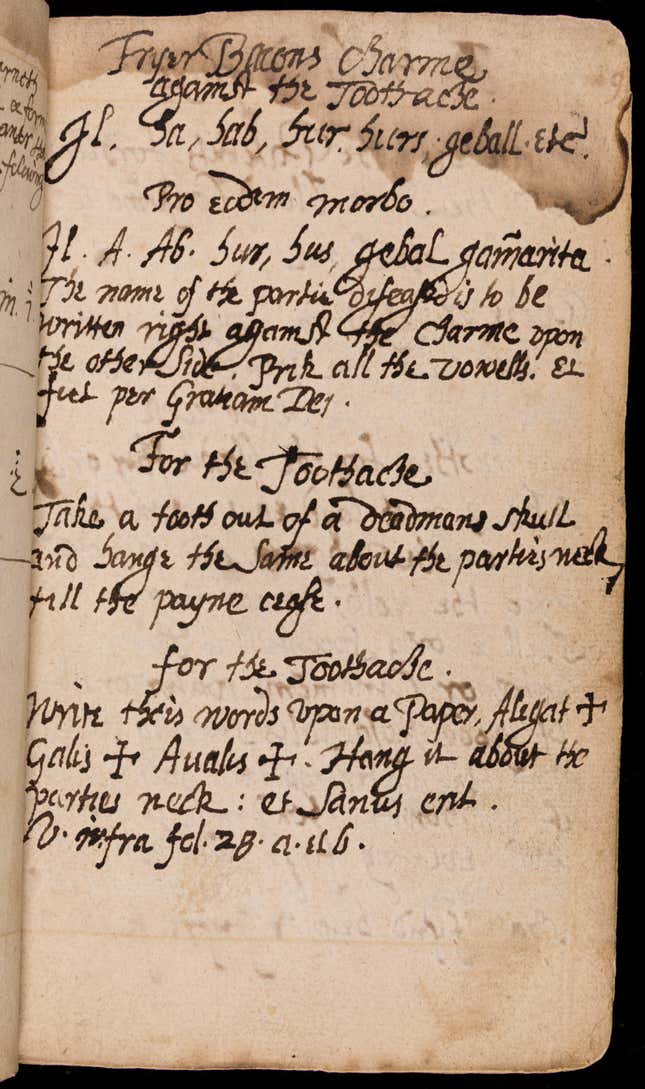 Fryer Bacons Charme
against the Toothache.
Il. ha, hab, hur. hurs. geball. etc.
Pro eodem morbo.
Il. A. Ab. hur, hus, gebal gam̃arita.
The name of the partie diseased is to be
written right against the Charme vpon
the other side. Prik all the vowells. Et
fiet per Gratiam Dei.
For the Toothache
Take a tooth out of a deadmans skull
and hange the same about the parties neck,
till the payne cease.
for the Toothache.
Write theis words vpon a Paper, Alegat ✠
Galis ✠ Aualis ✠. Hang it about the
parties neck: et Sanus erit.
V. infra fol. 28. a.